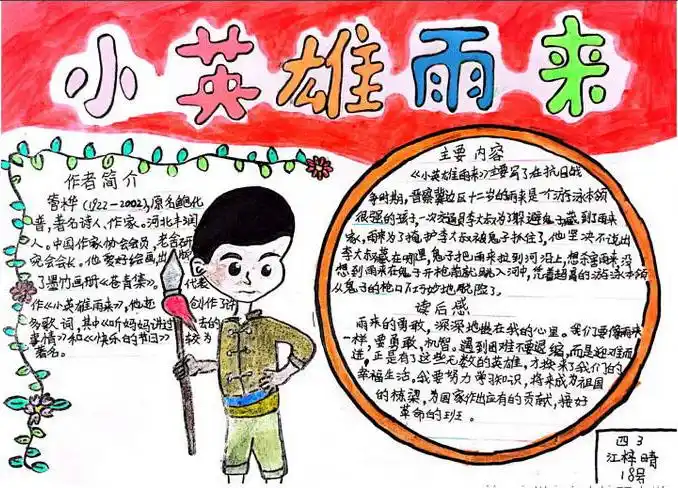 小英雄雨来
作者简介
管桦(1922-2002),原名鲍化
普,著名诗人、作家。河北丰润
人。中国作家协会会员,老舍研
究会会长。他爱好绘画出版
了墨竹画册《苍青集》。代表
作《小英雄雨来》,他还创作许
多歌词,其中《听妈妈讲过去的
事情》和《快乐的节日》较为
著名。
主要内容
《小英雄雨来》主要写了在抗日战
争时期,晋察冀边区十二岁的雨来是一个游泳本领
很强的孩子,一次交通员李大叔为了躲避鬼子藏到了雨来
家,雨来为了掩护李大叔被鬼子抓住了,他坚决不说出
李大叔藏在哪里,鬼子把雨来拉到河沿上,想杀害雨来没
想到雨来在鬼子开枪前就跳入河中,凭着超高的游泳本领
从鬼子的枪口下巧妙地脱险了。
读后感
雨来的勇敢,深深地映在我的心里。我们要像雨来
一样,要勇敢、机智。遇到困难不要退缩,而是迎难而
进。正是有了这些无数的英雄,才换来了我们的
幸福生活。我要努力学习知识,将来成为祖国
的栋梁,为国家作出应有的贡献,接好
革命的班。
四3
江梓晴
18号